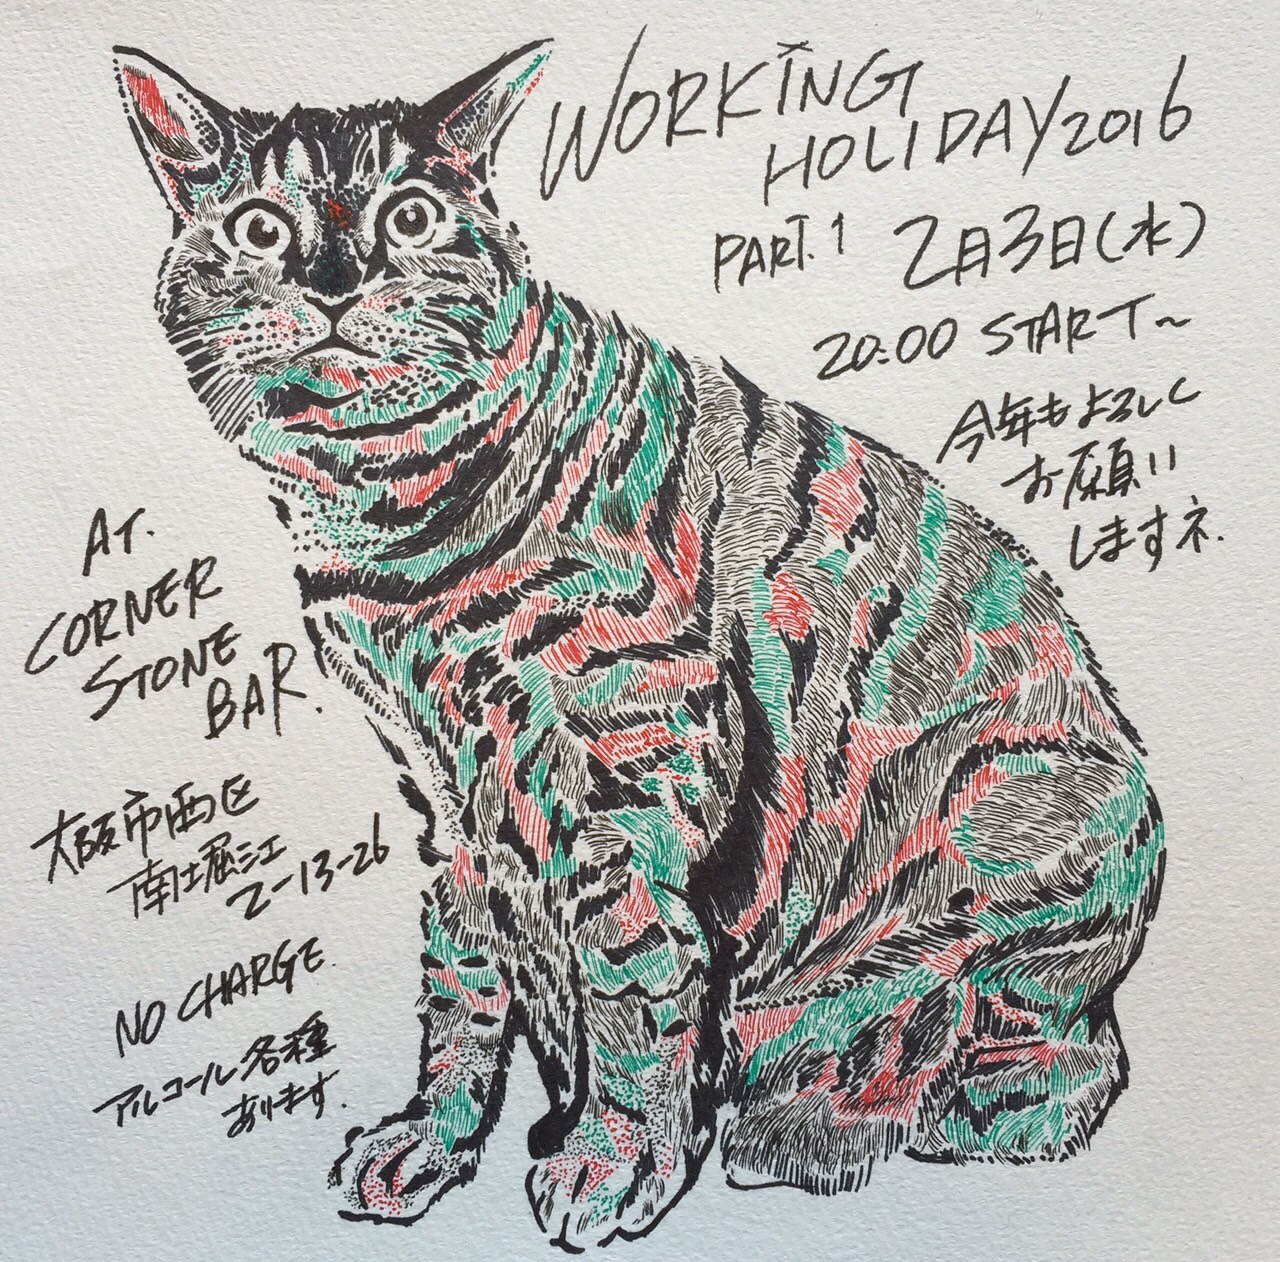 WORKING
HOLIDAY 2016
PART.1 2月3日(水)
20:00 START~
今年もよろしく
お願い
しますネ.
AT.
CORNER
STONE
BAR.
大阪市西区
南堀江
2-13-26
NO CHARGE.
アルコール各種
あります.